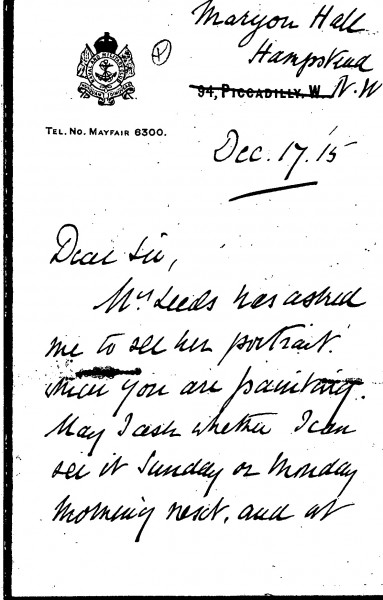 Maryon Hall
Hampstead
94, PICCADILLY. W. N.W
TEL. NO. MAYFAIR 6300.
Dec. 17. 15
Dear Sir,
Mrs Leeds has asked
me to see her portrait
which you are painting.
May I ask whether I can
see it Sunday or Monday
morning next, and at